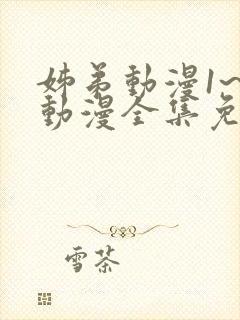 姊弟動漫1~
動漫全集免
雪茶